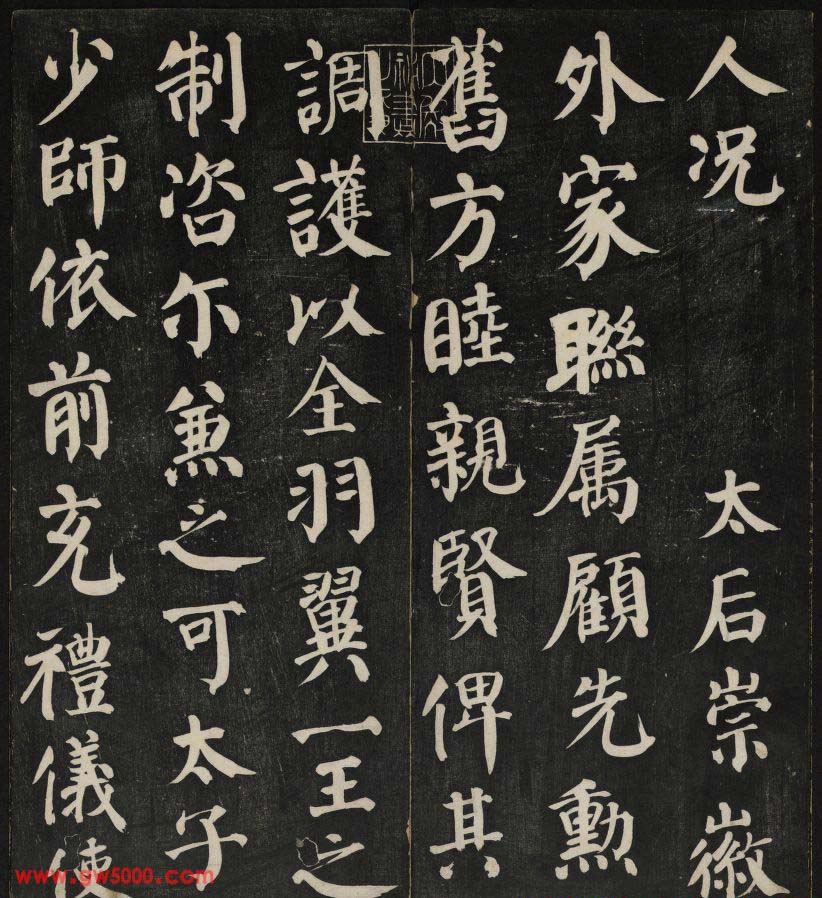 人况 太后崇徽
外家聯属顧先勲
舊方睦親賢俾其
調護以全羽翼一王之
制咨尓兼之可太子
少師依前充禮儀使
www.gw5000.com